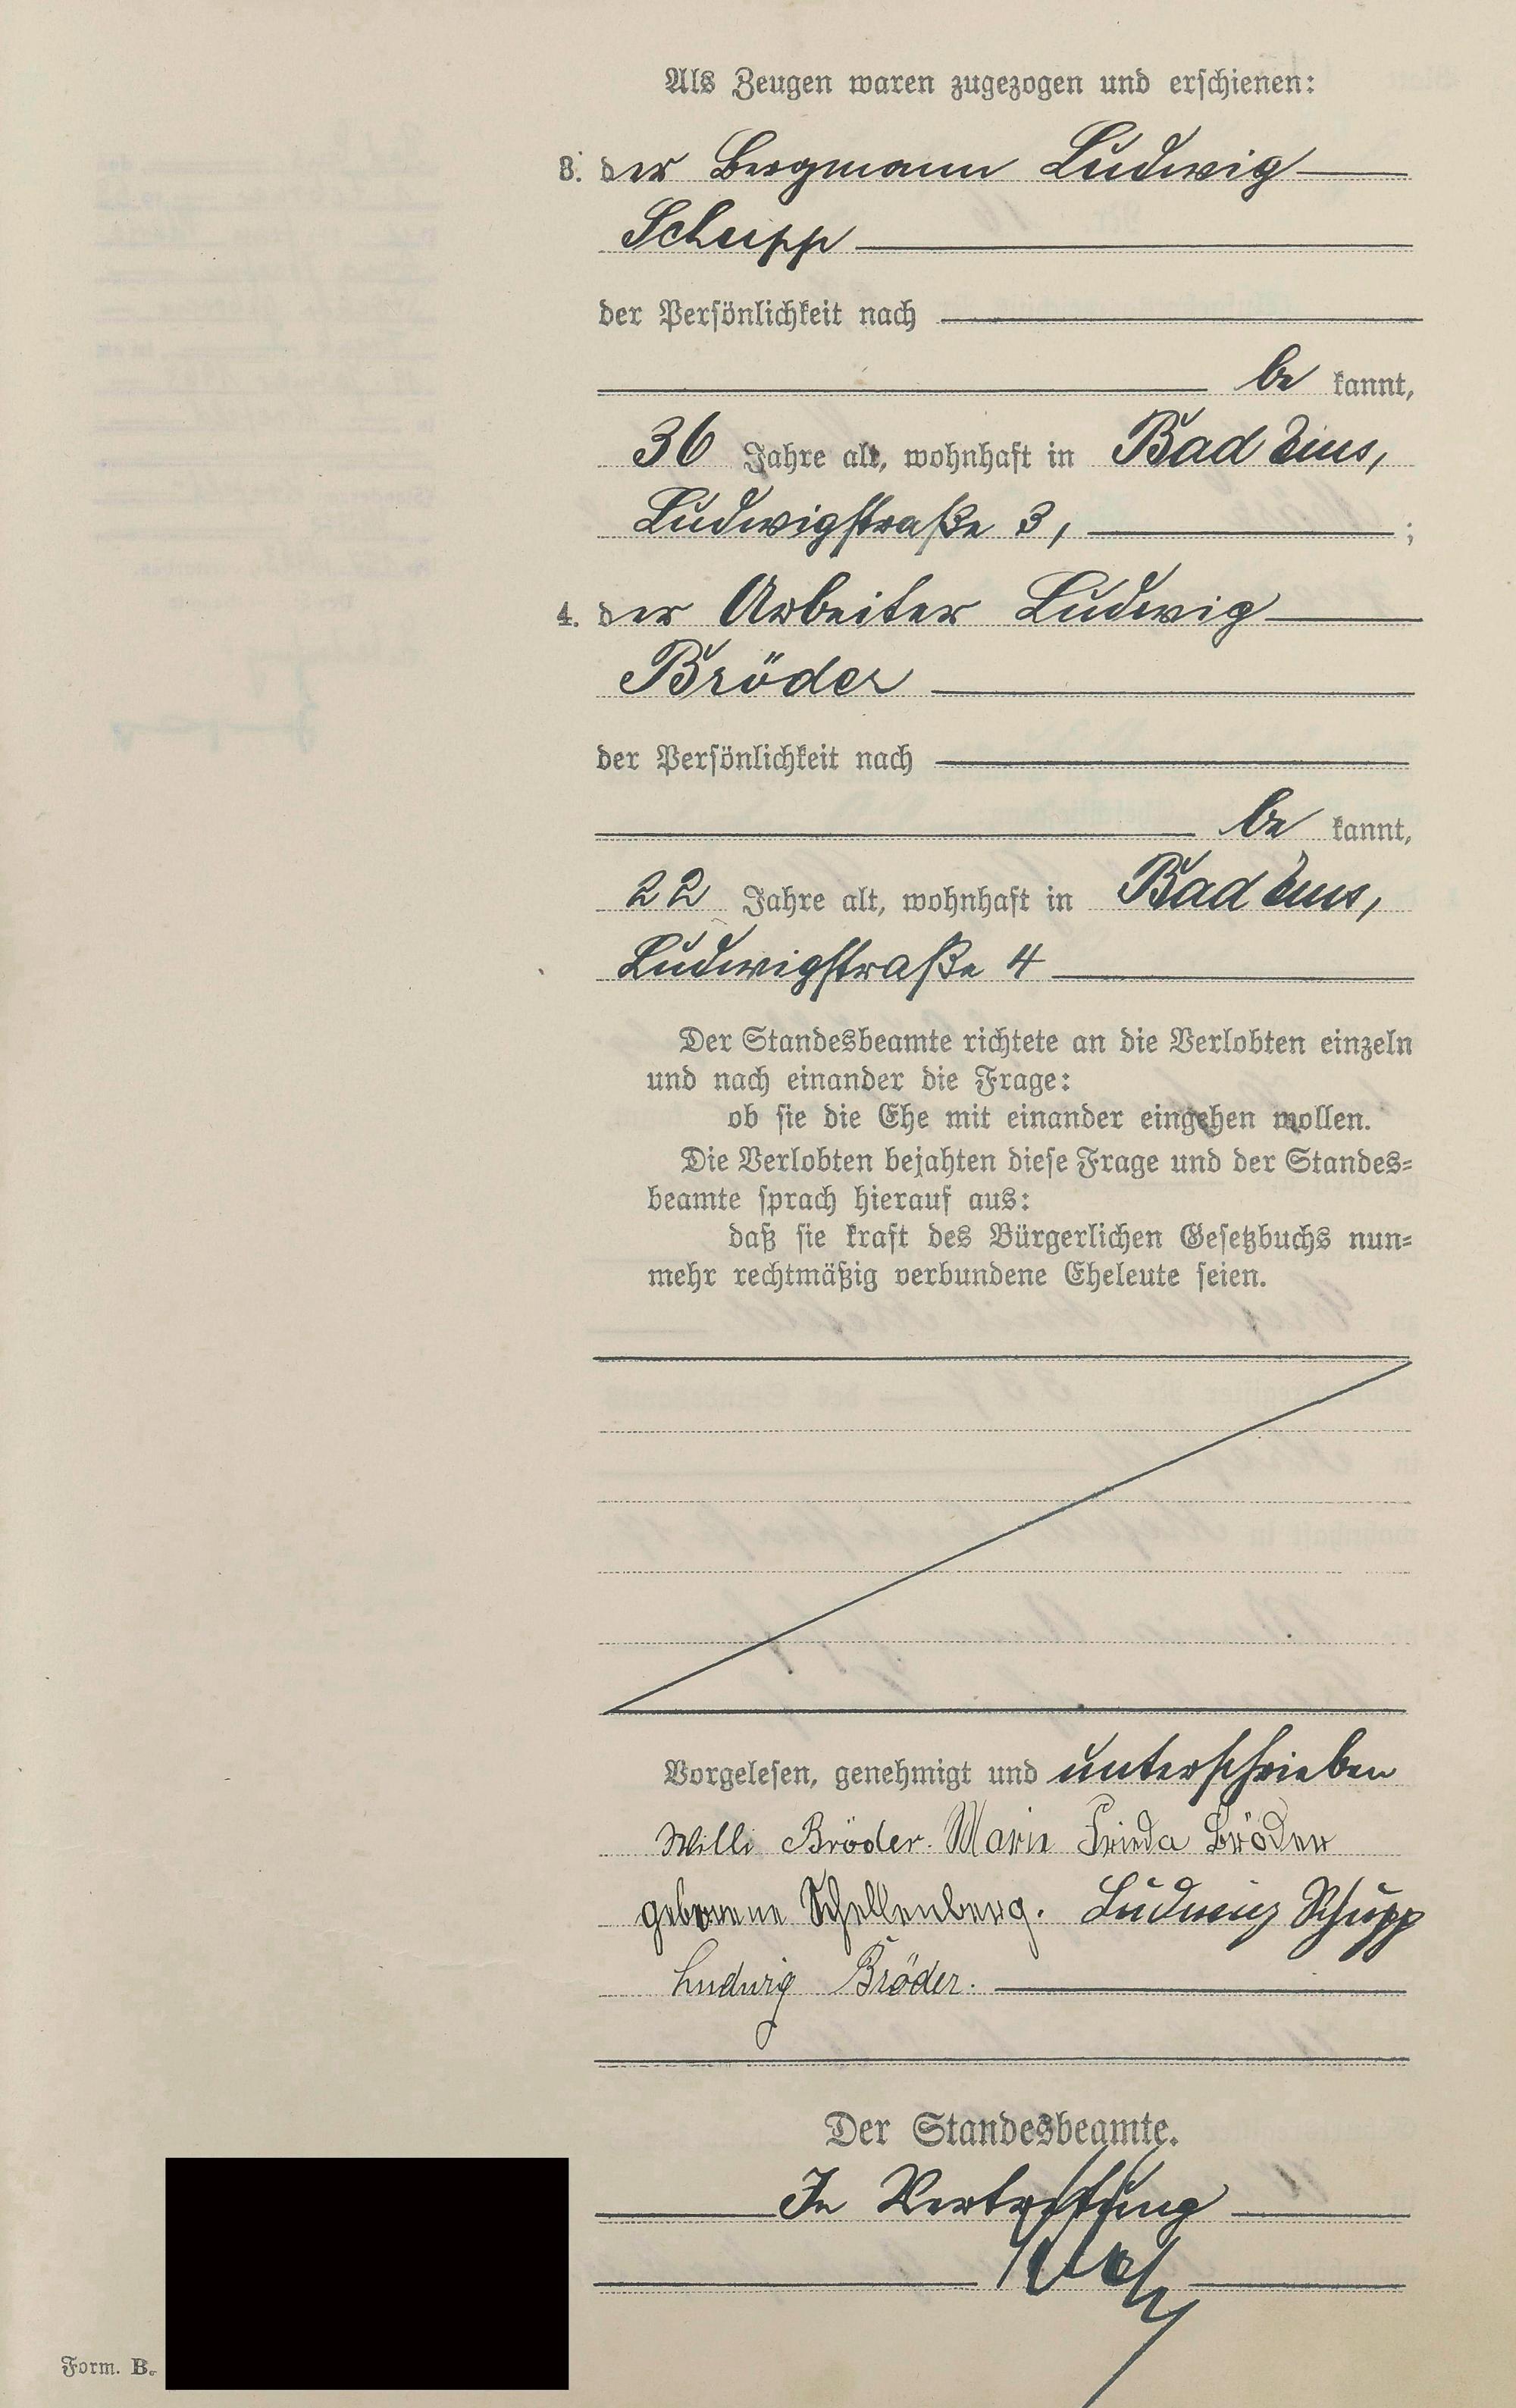 Als Zeugen waren zugezogen und erschienen:
3. der Bergmann Ludwig
Schupp
der Persönlichkeit nach
be kannt,
36 Jahre alt, wohnhaft in Bad Ems,
Ludwigstraße 3, ;
4. der Arbeiter Ludwig
Bröder
der Persönlichkeit nach
be kannt,
22 Jahre alt, wohnhaft in Bad Ems,
Ludwigstraße 4
Der Standesbeamte richtete an die Verlobten einzeln
und nach einander die Frage:
ob sie die Ehe mit einander eingehen wollen.
Die Verlobten bejahten diese Frage und der Standes-
beamte sprach hierauf aus:
daß sie kraft des Bürgerlichen Gesetzbuchs nun-
mehr rechtmäßig verbundene Eheleute seien.
Vorgelesen, genehmigt und unterschrieben
Willi Bröder. Marie Frieda Bröder
geborene Schellenberg. Ludwig Schupp
Ludwig Bröder.
Der Standesbeamte.
In Vertretung
Form. B.